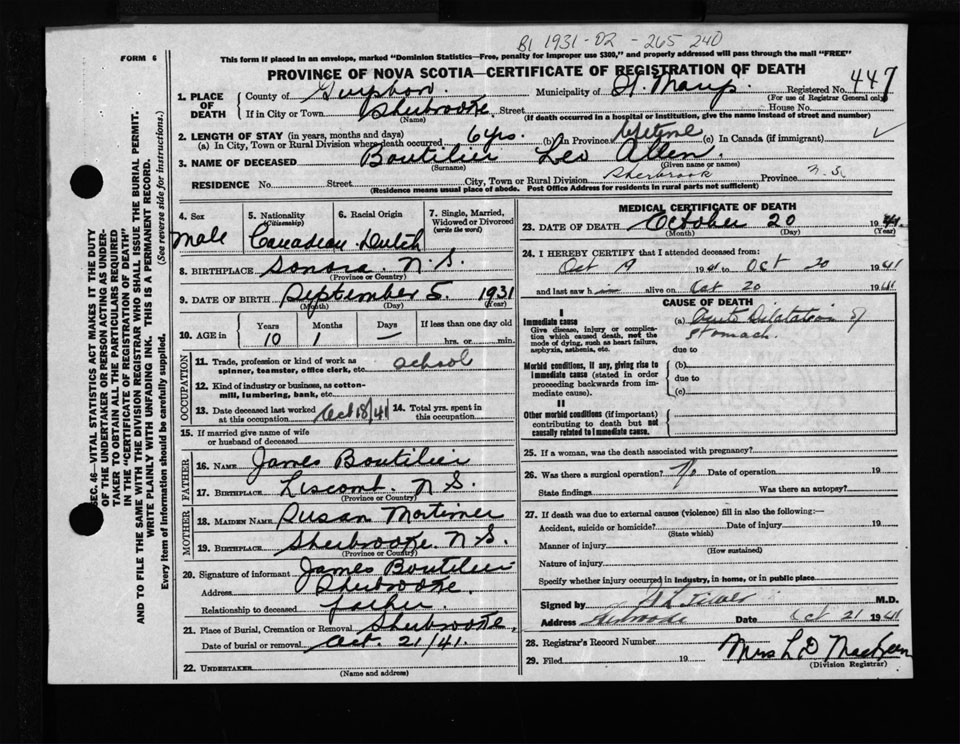 B1 1931-02-265240
FORM 6
This form if placed in an envelope, marked "Dominion Statistics—Free, penalty for improper use $300," and properly addressed will pass through the mail "FREE"
PROVINCE OF NOVA SCOTIA—CERTIFICATE OF REGISTRATION OF DEATH
1. PLACE OF DEATH
County of Municipality of St. Marys. Registered No. 447
(For use of Registrar General only)
If in City or Town Sherbrooke Street House No.
(Name) (If death occurred in a hospital or institution, give the name instead of street and number)
2. LENGTH OF STAY (in years, months and days)
(a) In City, Town or Rural Division where death occurred 6 yrs. (b) In Province Lifetime (c) In Canada (if immigrant)
3. NAME OF DECEASED Boutilier Leo Allen.
(Surname) (Given name or names)
RESIDENCE No. Street City, Town or Rural Division Sherbrook Province N.S.
(Residence means usual place of abode. Post Office Address for residents in rural parts not sufficient)
4. Sex
5. Nationality (Citizenship)
6. Racial Origin
7. Single, Married, Widowed or Divorced (write the word)
Male Canadian Dutch
8. BIRTHPLACE Sonora. N.S.
(Province or Country)
9. DATE OF BIRTH September 5. 1931
(Month) (Day) (Year)
10. AGE in Years Months Days If less than one day old
10 1 — hrs. or min.
OCCUPATION
11. Trade, profession or kind of work as spinner, teamster, office clerk, etc. School
12. Kind of industry or business, as cotton-mill, lumbering, bank, etc.
13. Date deceased last worked at this occupation Oct 18/41 14. Total yrs. spent in this occupation
15. If married give name of wife or husband of deceased
FATHER
16. NAME James Boutilier
17. BIRTHPLACE Liscomb. N.S.
(Province or Country)
MOTHER
18. MAIDEN NAME Susan Mortimer
19. BIRTHPLACE Sherbrooke. N.S.
(Province or Country)
20. Signature of informant James Boutilier
Address Sherbrooke.
Relationship to deceased father.
21. Place of Burial, Cremation or Removal Sherbrooke,
Date of burial or removal Oct. 21/41.
22. UNDERTAKER
(Name and address)
MEDICAL CERTIFICATE OF DEATH
23. DATE OF DEATH October 20 1941
(Month) (Day) (Year)
24. I HEREBY CERTIFY that I attended deceased from:
Oct 19 1941 to Oct 20 1941
and last saw him alive on Oct 20 1941
CAUSE OF DEATH
I
Immediate cause
Give disease, injury or complication which caused death, not the mode of dying, such as heart failure, asphyxia, asthenia, etc.
(a) Acute Dilatation of stomach.
due to
Morbid conditions, if any, giving rise to immediate cause (stated in order proceeding backwards from immediate cause).
(b)
due to
(c)
II
Other morbid conditions (if important) contributing to death but not causally related to immediate cause.
25. If a woman, was the death associated with pregnancy?
26. Was there a surgical operation? No Date of operation 19
State findings Was there an autopsy?
27. If death was due to external causes (violence) fill in also the following:—
Accident, suicide or homicide? Date of injury 19
(State which)
Manner of injury
(How sustained)
Nature of injury
Specify whether injury occurred in industry, in home, or in public place
Signed by M.D.
Address Sherbrooke Date Oct 21 1941
28. Registrar's Record Number
29. Filed 19 Mrs L D
(Division Registrar)
SEC. 46—VITAL STATISTICS ACT MAKES IT THE DUTY
OF THE UNDERTAKER OR PERSON ACTING AS UNDER-
TAKER TO OBTAIN ALL THE PARTICULARS REQUIRED
IN THE "CERTIFICATE OF REGISTRATION OF DEATH"
AND TO FILE THE SAME WITH THE DIVISION REGISTRAR WHO SHALL ISSUE THE BURIAL PERMIT.
WRITE PLAINLY WITH UNFADING INK. THIS IS A PERMANENT RECORD.
Every item of information should be carefully supplied. (See reverse side for instructions.)